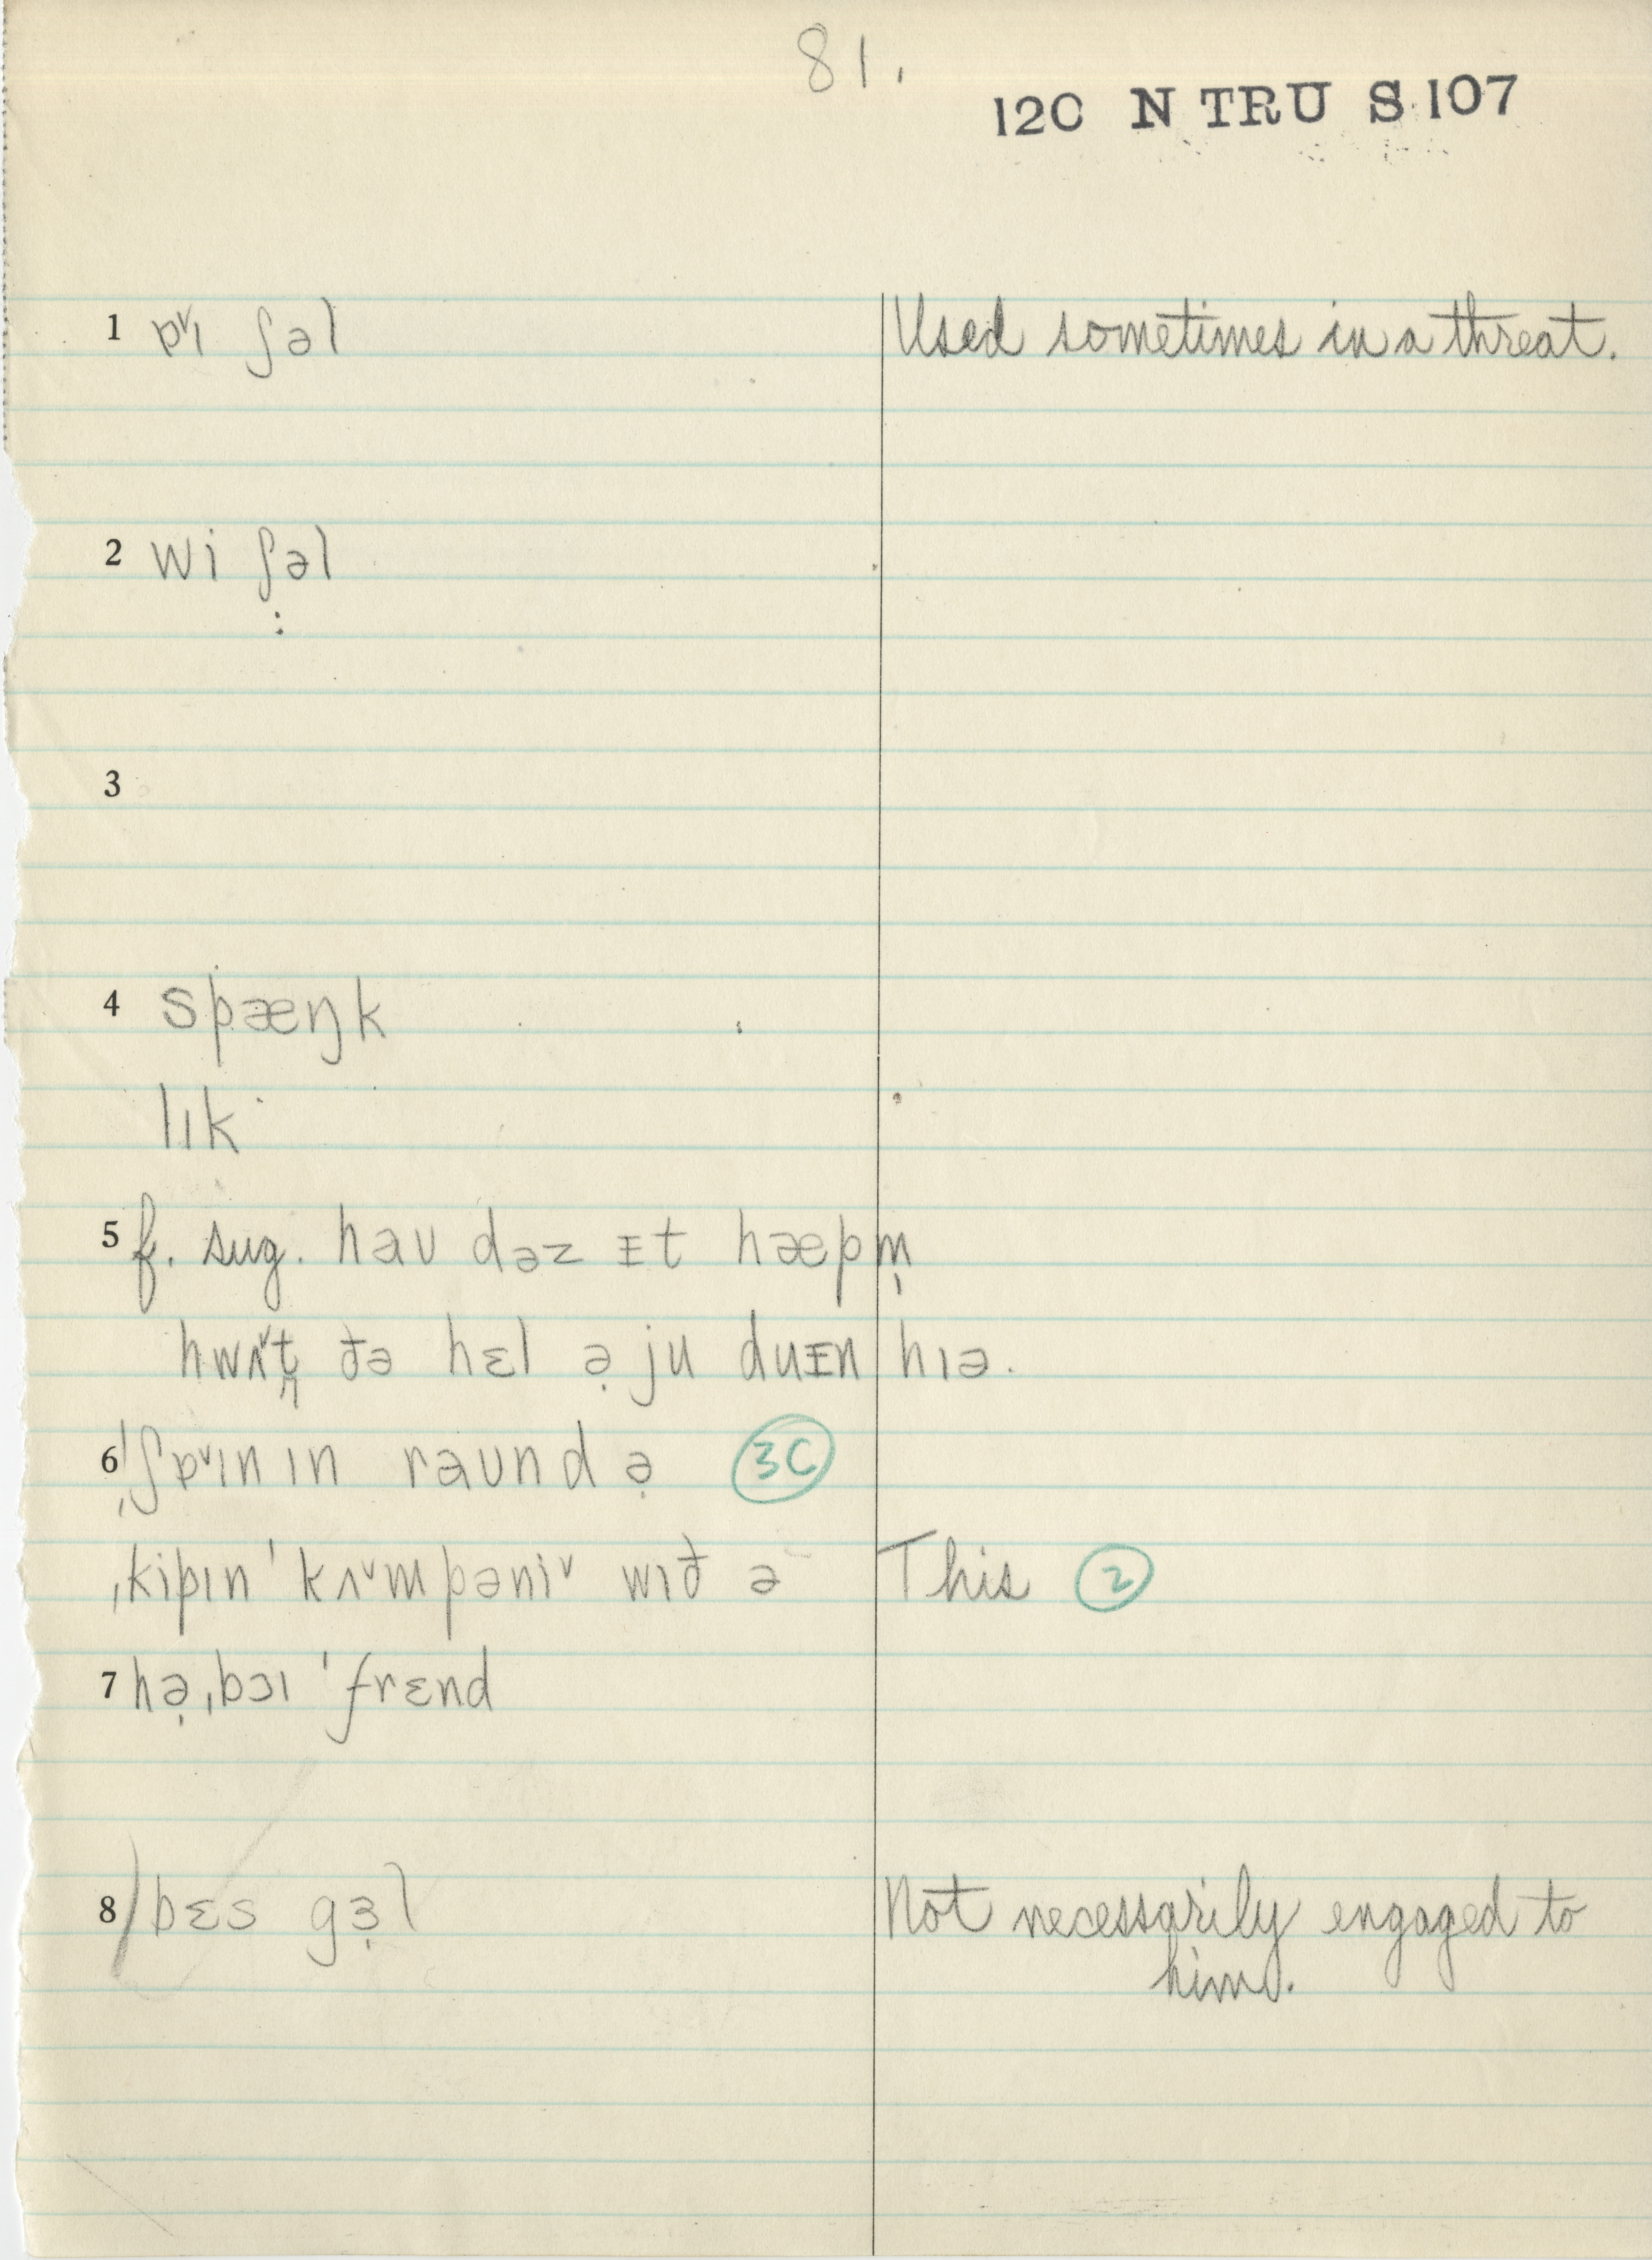 81.
12C N TRU S 107
1 ɒᵛɪ ʃəl Used sometimes in a threat.
2 wi ʃəl
3
4 spæŋk
lɪk
5 f. sug. haʊ dəz ɪt hæpm̩
hwʌᵛt̬ ðə hɛl ə̣ ju duɪn hɪə.
6 ˌʃɒᵛɪnɪn raʊnd ə̣ 3C
ˌkipɪn ˈkʌᵛmpəniᵛ wɪð ə This 2
7 hə̣ ˌbɔɪ ˈfrɛnd
8 bɛs gɜ̣l Not necessarily engaged to
him.